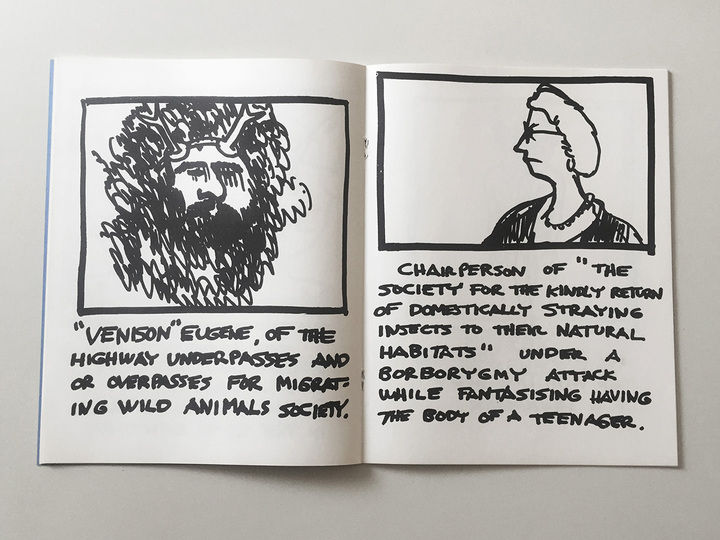 "VENISON" EUGENE, OF THE
HIGHWAY UNDERPASSES AND
OR OVERPASSES FOR MIGRAT-
ING WILD ANIMALS SOCIETY.
CHAIRPERSON OF "THE
SOCIETY FOR THE KINDLY RETURN
OF DOMESTICALLY STRAYING
INSECTS TO THEIR NATURAL
HABITATS" UNDER A
BORBORYGMY ATTACK
WHILE FANTASISING HAVING
THE BODY OF A TEENAGER.